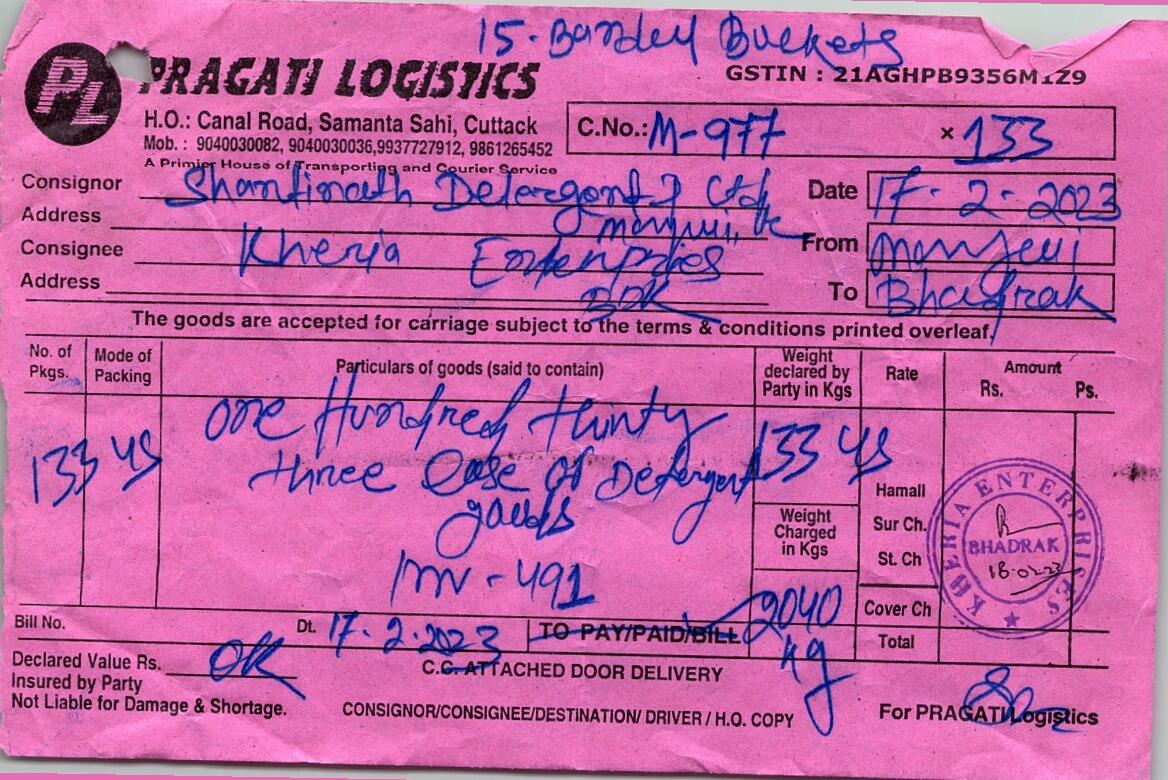 15. Bandel Buckets
PL PRAGATI LOGISTICS
GSTIN : 21AGHPB9356M1Z9
H.O.: Canal Road, Samanta Sahi, Cuttack
Mob. : 9040030082, 9040030036,9937727912, 9861265452
A Primier House of Transporting and Courier Service
C.No.: M-977 × 133
Consignor Shantinath Detergent P Ltd
Date 17-2-2023
Address
Consignee Kheria Enterprises
From Manjuri
Address BDK
To Bhadrak
The goods are accepted for carriage subject to the terms & conditions printed overleaf,
No. of Pkgs. Mode of Packing Particulars of goods (said to contain) Weight declared by Party in Kgs Rate Amount Rs. Ps.
One Hundred thirty
133 133
three Case Of Detergent
goods
Hamali
Weight Charged in Kgs
Sur Ch.
St. Ch
KHERIA ENTERPRISES
BHADRAK
18-02-23
Inv - 491
2040 kg
Cover Ch
Bill No. Dt. 17-2-2023 TO PAY/PAID/BILL Total
Declared Value Rs. OK
C.C. ATTACHED DOOR DELIVERY
Insured by Party
Not Liable for Damage & Shortage.
CONSIGNOR/CONSIGNEE/DESTINATION/ DRIVER / H.O. COPY
For PRAGATI Logistics